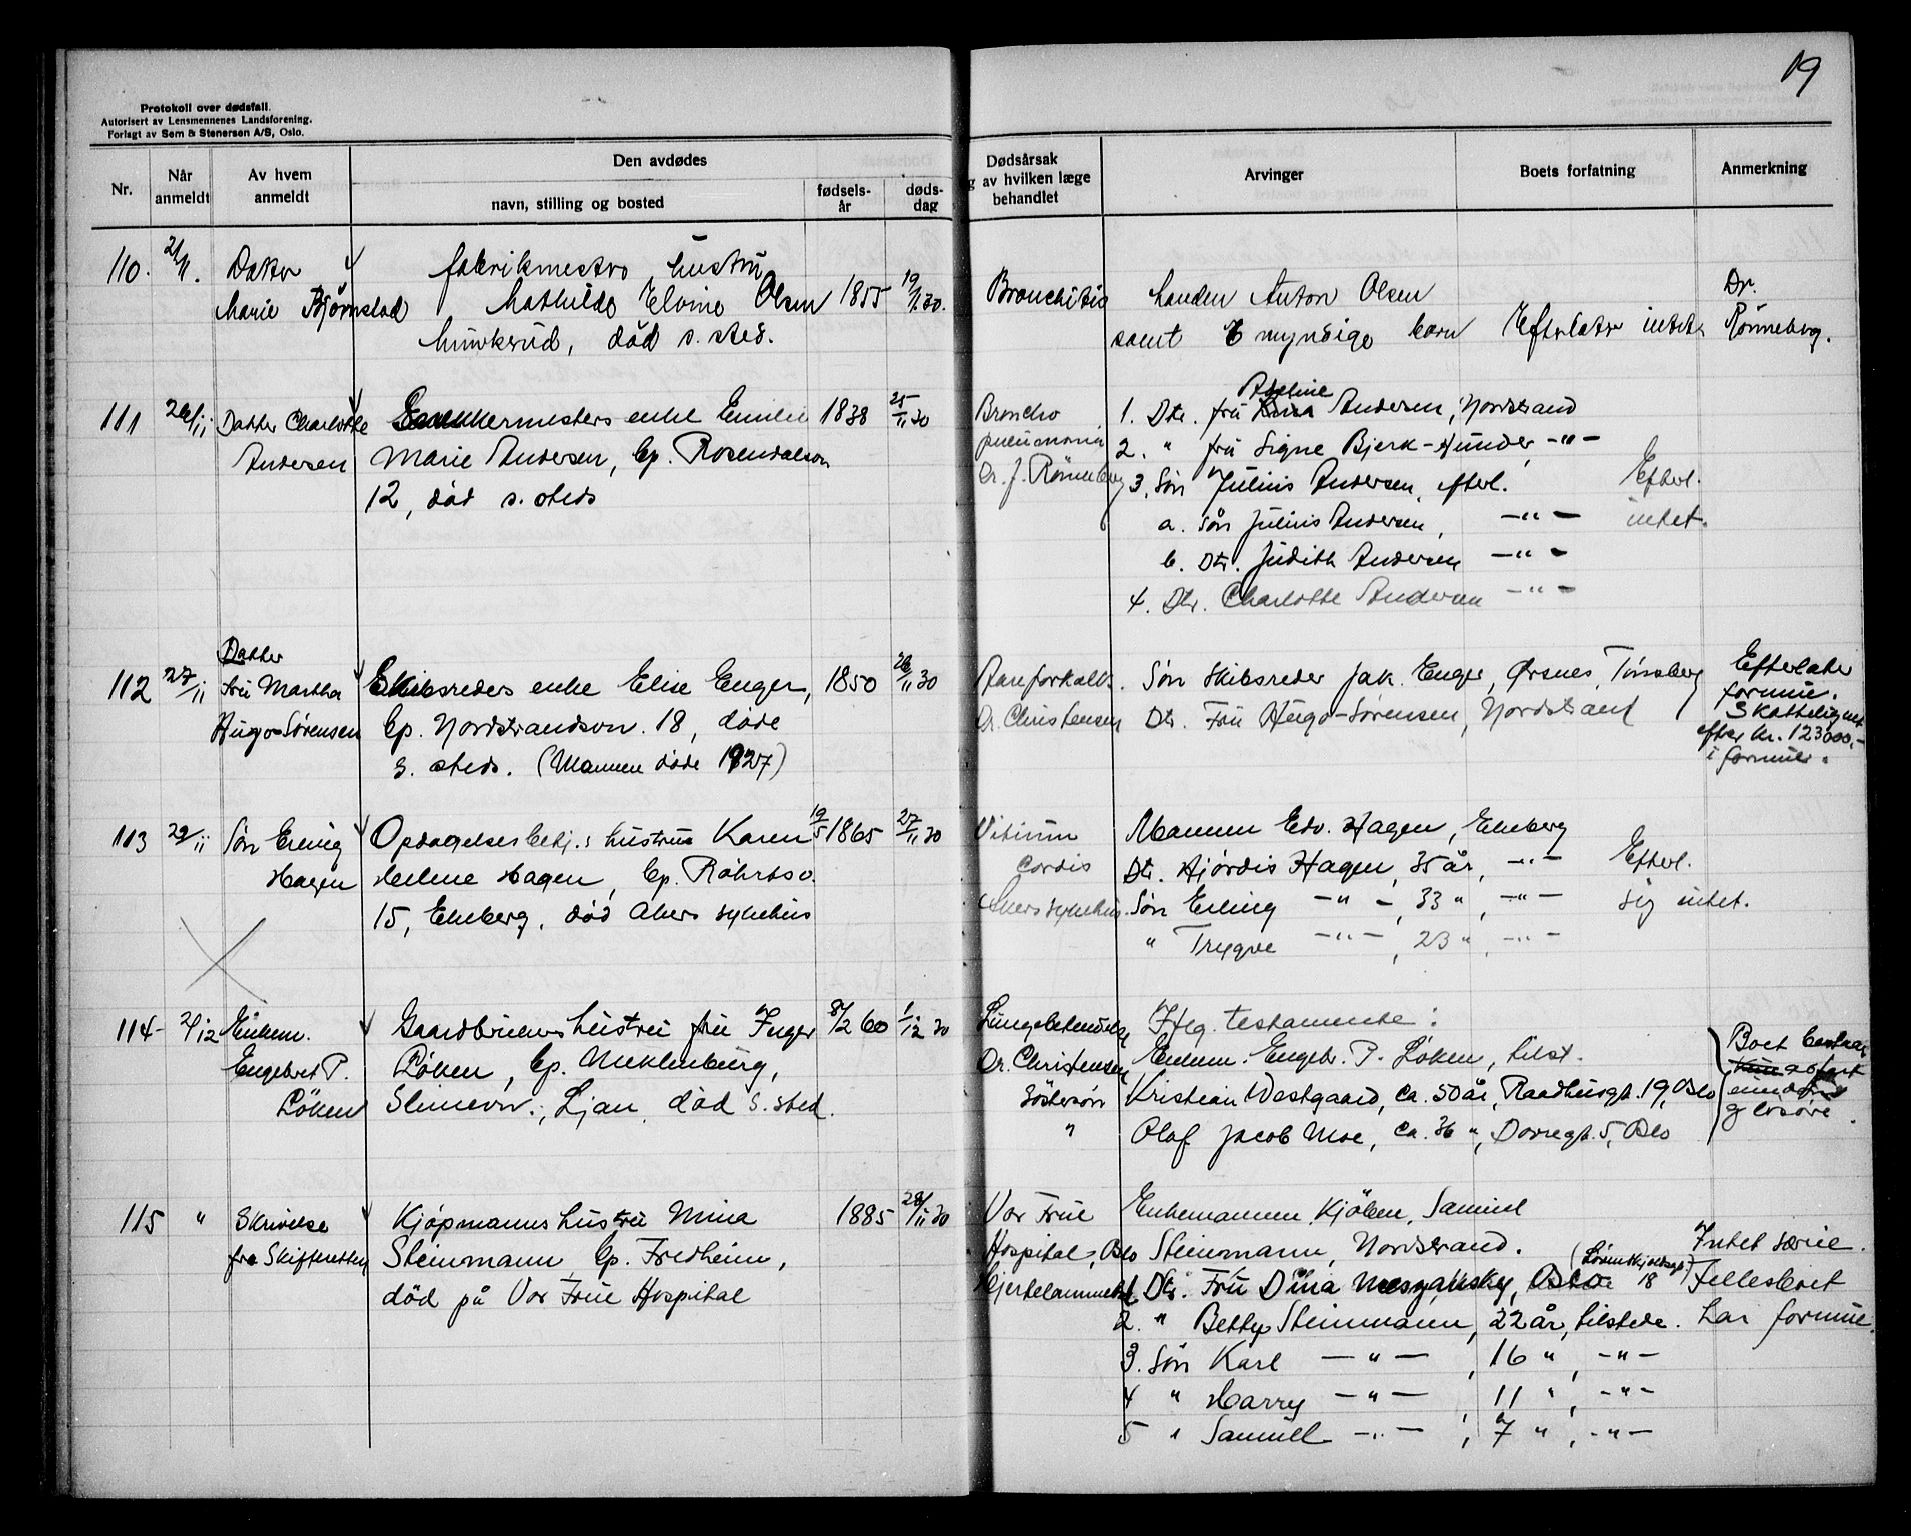 19
Protokoll over dødsfall.
Autorisert av Lensmennenes Landsforening.
Forlagt av Sem & Stenersen A/S, Oslo.
Nr.
Når anmeldt
Av hvem anmeldt
Den avdødes
navn, stilling og bosted
fødsels-år
døds-dag
Dødsårsak
g av hvilken læge
behandlet
Arvinger
Boets forfatning
Anmerkning
110. 21/11. Datter
Marie Bjørnstad
fabrikmestro hustru
Mathilde Elvine Olsen 1855 19/11 30.
Munkerud, død s. sted.
Bronchitis
Manden Anton Olsen
samt 6 myndige barn Efterlater intet
Dr.
Rønneberg.
111 26/11 Datter Charlotte
Andersen
Snekkermesters enke Emilie 1838 25/11 30
Marie Andersen, bp. Rosendalsvn
12, død s. steds
Broncho
pneumonia
Dr. J. Rønneberg
1. Dtr. fru Adeline Andersen, Nordstrand
2. " fru Signe Bjerk-Hunder, -"-
3. Søn Julius Andersen, efterl.
a. Søn Julius Andersen, -"-
b. Dtr. Judith Andersen -"-
4. Dtr. Charlotte Andersen -"-
Efterl.
intet.
112 27/11 Datter
fru Martha
Hugo-Sørensen
Skibsreders enke Elise Enger, 1850 26/11 30
bp. Nordstrandsvn. 18, døde
s. steds. (Mannen døde 1927)
Aareforkalk.
Dr. Christensen
Søn Skibsreder Jak. Enger, Ørsnes, Tønsberg
Dtr. Fru Hugo-Sørensen, Nordstrand
Efterlater
formue.
Skattelignet
efter kr. 123000,-
i formue.
113 29/11 Søn Erling
Hagen
Opdagelsesbetj.s hustru Karen 19/5 1865 27/11 30
Helene Hagen, bp. Röhrtsv.
15, Ekeberg, død Akers sykehus
Vitium
cordis
Akers sykehus.
Mannen Edv. Hagen, Ekeberg
Dtr. Hjördis Hagen, 35 år, -"-
Søn Erling -"-, 33 ", -"-
" Trygve -"-, 23 ", -"-
Efterl.
sig intet.
114- 2/12 Enkem.
Engebret P.
Løken
Gaardbrukers hustru fru Inger 8/2 60 1/12 30
Løken, bp. Meklenburg,
Slimevn., Ljan, død s. sted.
Lungebetendelse
Dr. Christensen
Iflg. testamente:
Enkem. Engebr. P. Løken, tilst.
Søstersøn Kristian Westgaard, ca. 50 år, Raadhusgt. 19, Oslo
" Olaf Jacob Moe, ca. 36 ", Dovregt. 5, Oslo
Boet bestaar
av fast
eiendom
og løsøre.
115 " Skrivelse
fra Skifteretten
Kjøpmanns hustru Mina 1885 28/11 30
Steinmann bp. Fredheim,
død på Vor Frue Hospital
Vor Frue
Hospital, Oslo
Hjertelammelse
Enkemannen, Kjøbm. Samuel
Steinmann, Nordstrand.
1. Dtr. Fru Dina Meszansky, Oslo (Lørenskjoldsgt. 18)
2. " Betty Steinmann, 22 år, tilstede.
3. Søn Karl -"-, 16 ", -"-
4 " Harry -"-, 11 ", -"-
5 " Samuel -"-, 7 ", -"-
Intet særeie.
Fellesboet
har formue.